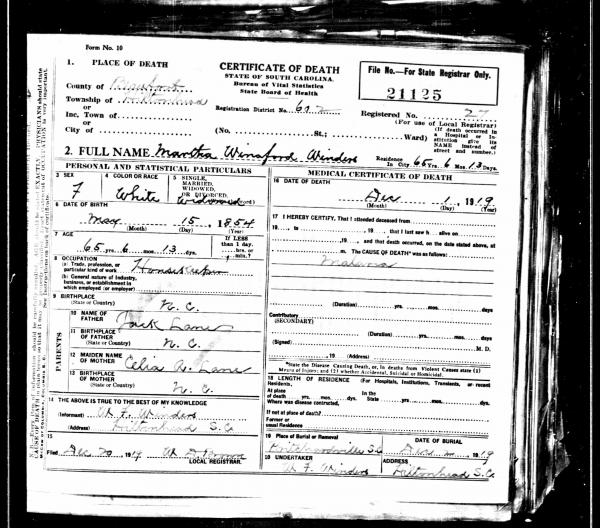 Form No. 10
1. PLACE OF DEATH
County of Beaufort
Township of Hiltonhead
or
Inc. Town of
or
City of
CERTIFICATE OF DEATH
STATE OF SOUTH CAROLINA.
Bureau of Vital Statistics
State Board of Health
Registration District No.
(No. St.; Ward)
File No.—For State Registrar Only.
21125
Registered No. 27
(For use of Local Registrar)
(If death occurred in a Hospital or Institution give its NAME instead of street and number.)
2. FULL NAME Martha Winsford Winders
Residence In City 65 Yrs. 6 Mos. 13 Days.
PERSONAL AND STATISTICAL PARTICULARS
3 SEX F
4 COLOR OR RACE White
5 SINGLE, MARRIED, WIDOWED, OR DIVORCED Widowed
6 DATE OF BIRTH
May 15, 1854
(Month) (Day) (Year)
7 AGE
65 yrs. 6 mos. 13 days
If LESS than 1 day, hrs. or min.?
8 OCCUPATION
(a) Trade, profession, or particular kind of work Housekeeper
(b) General nature of Industry, business, or establishment in which employed (or employer)
9 BIRTHPLACE
(State or Country) N. C.
PARENTS
10 NAME OF FATHER Jack Lane
11 BIRTHPLACE OF FATHER
(State or Country) N. C.
12 MAIDEN NAME OF MOTHER Celia A. Lane
13 BIRTHPLACE OF MOTHER
(State or Country) N. C.
14 THE ABOVE IS TRUE TO THE BEST OF MY KNOWLEDGE
(Informant) W. F. Winders
(Address) Hiltonhead S.C.
15
Filed Dec 20 1919
LOCAL REGISTRAR.
MEDICAL CERTIFICATE OF DEATH
16 DATE OF DEATH
Dec 1, 1919
(Month) (Day) (Year)
17 I HEREBY CERTIFY, That I attended deceased from
19 , to , 19 , that I last saw h alive on
, 19 , and that death occurred, on the date stated above, at
m. The CAUSE OF DEATH* was as follows:
Malaria
(Duration) yrs. mos. days
Contributory
(SECONDARY)
(Duration) yrs. mos. days
(Signed) M. D.
, 19 (Address)
*State the Disease Causing Death, or, in deaths from Violent Causes state (1) Means of Injury; and (2) whether Accidental, Suicidal or Homicidal.
18 LENGTH OF RESIDENCE (For Hospitals, Institutions, Transients, or recent Residents.
At place of death yrs. mos. days. In the State yrs. mos. days
Where was disease contracted,
If not at place of death?
Former or usual Residence
19 Place of Burial or Removal
DATE OF BURIAL
1919
UNDERTAKER
W. F. Winders
ADDRESS
Hiltonhead S.C.